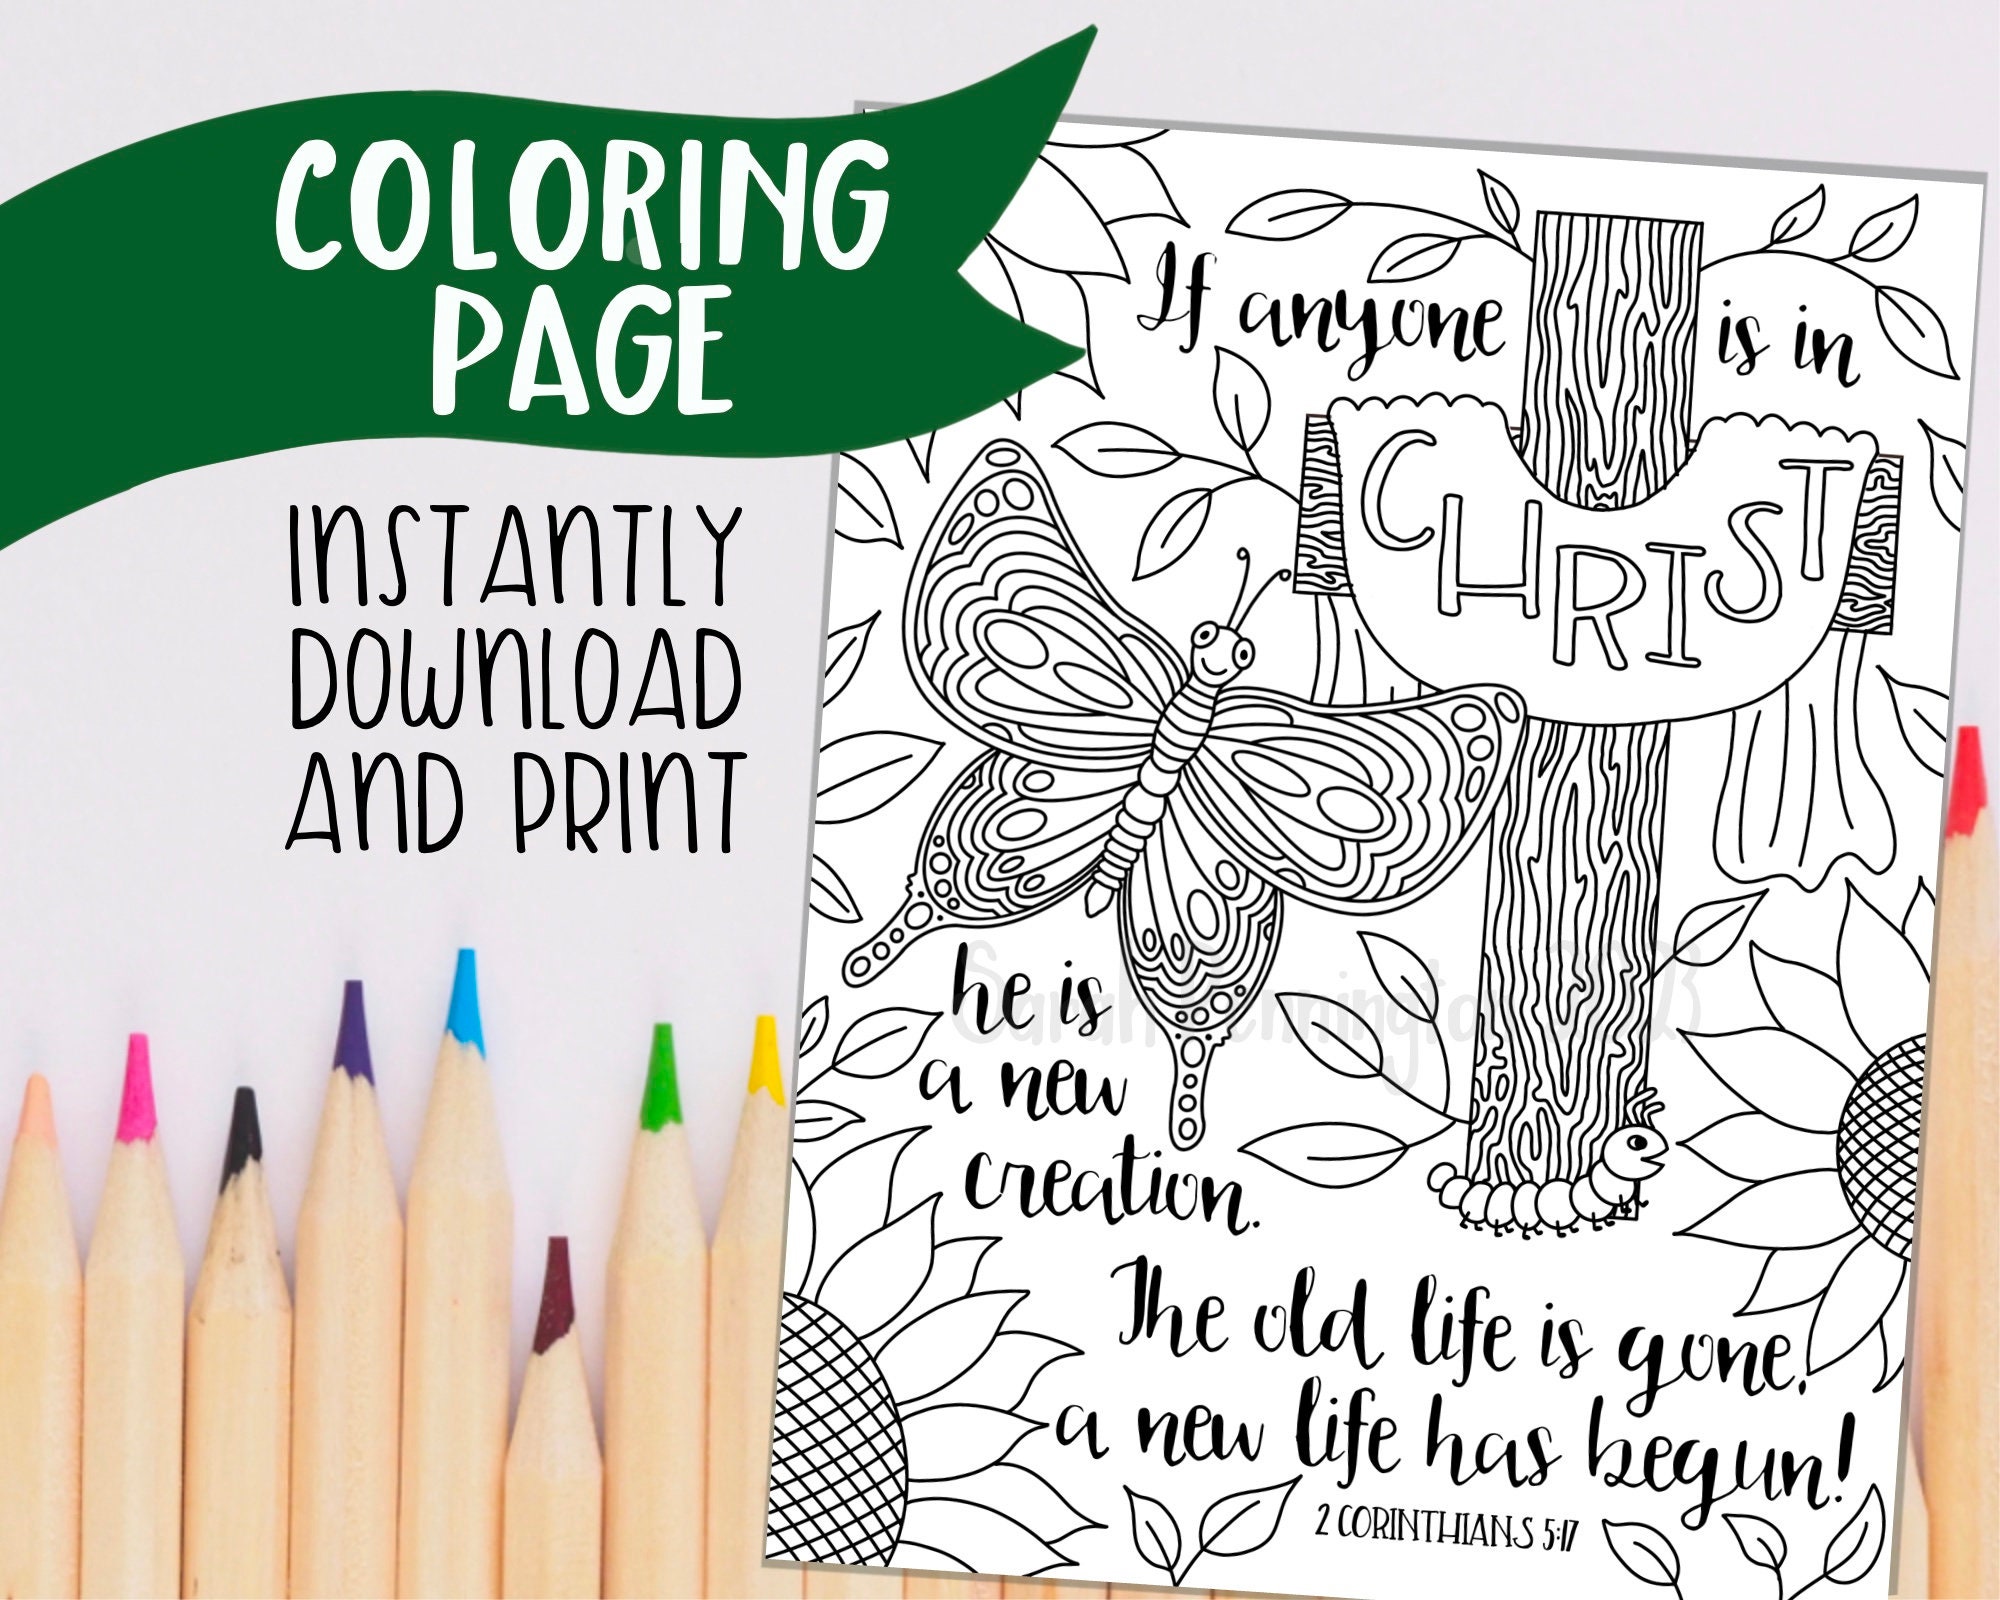 COLORING
PAGE
INSTANTLY
DOWNLOAD
AND PRINT
If anyone is in
CHRIST
he is
a new
creation.
The old life is gone,
a new life has begun!
2 CORINTHIANS 5:17
Sarah Pennington 2023